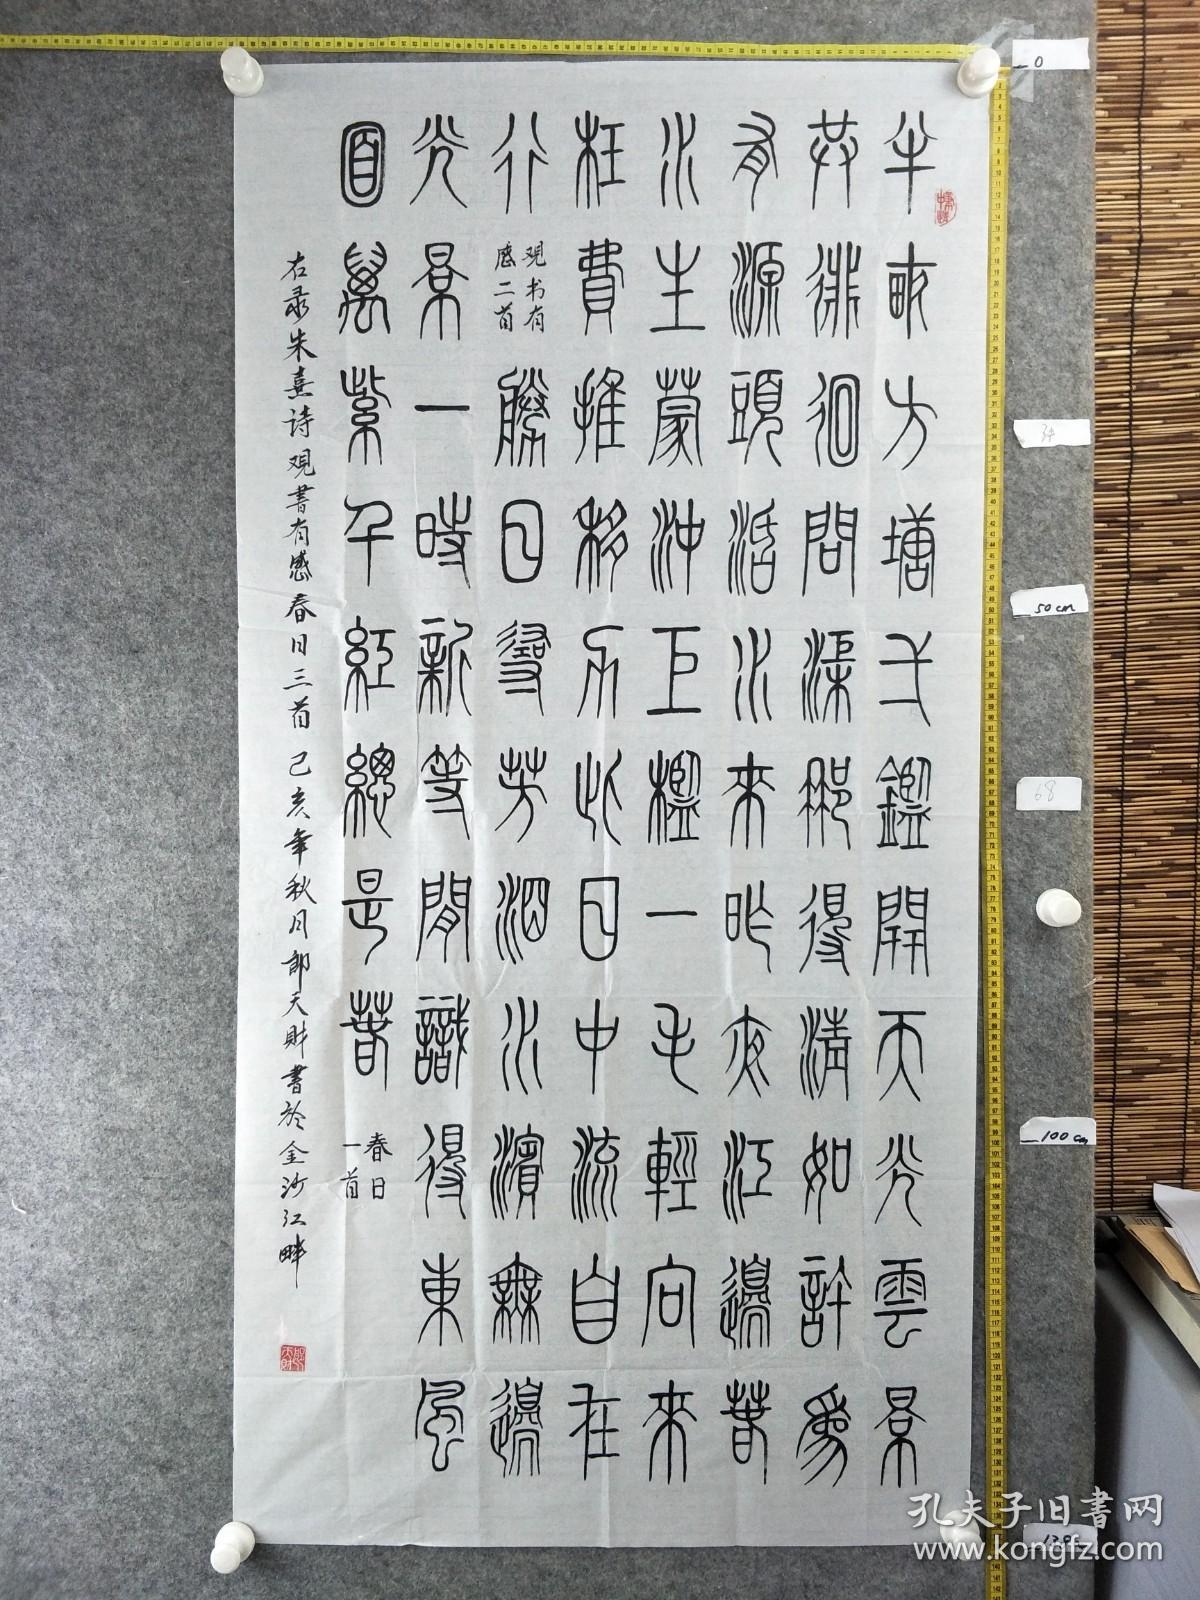 半畝方塘弌鑑開天光雲景
共徘徊問渠那得清如許為
有源頭活水來昨夜江邊春
水生蒙沖巨檻一毛輕向來
枉費推移力此日中流自在
行
观书有
感二首
勝日尋芳泗水濱無邊
光景一時新等閒識得東風
面萬紫千紅總是春
春日
一首
右录朱熹诗观書有感春日三首 己亥年秋月郎天財書於金沙江畔
0
34
50cm
68
100cm
孔夫子旧書网
www.kongfz.com